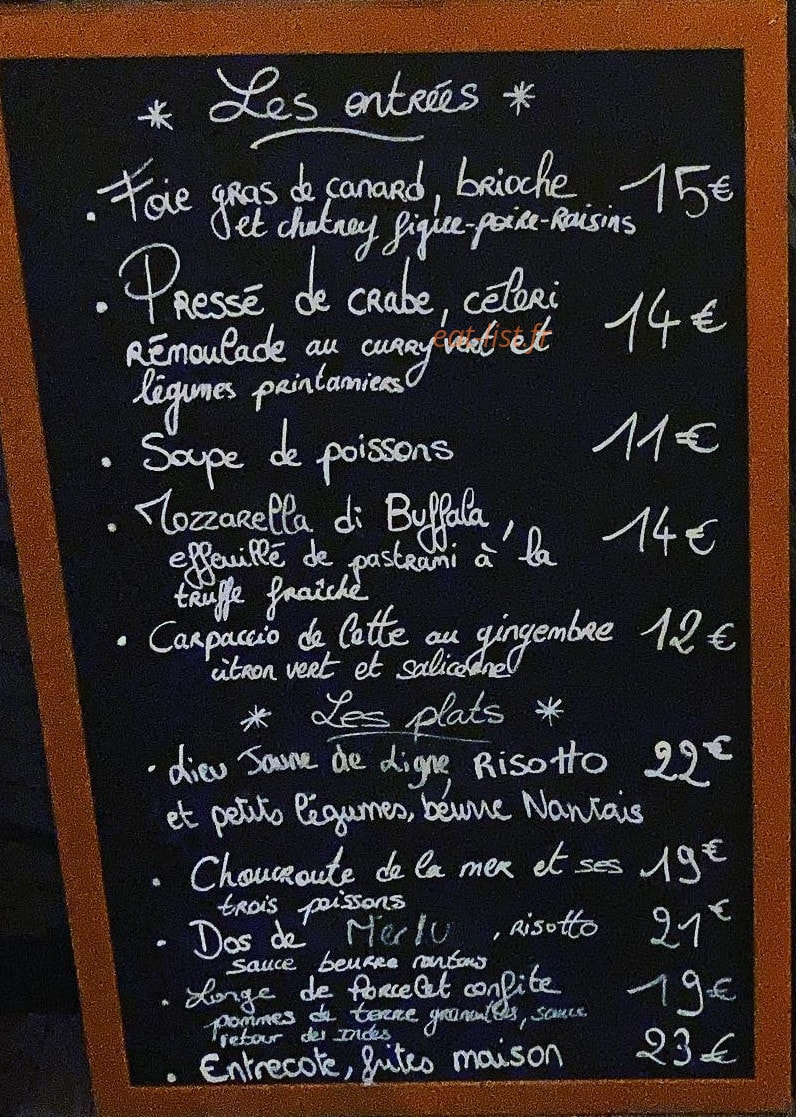 * Les entrées *
. Foie gras de canard, brioche 15€
et chutney figue-poire-Raisins
. Pressé de crabe, céleri 14€
Rémoulade au curry vert et
eat-list.fr
légumes printaniers
. Soupe de poissons 11€
. Mozzarella di Buffala, 14€
effeuillé de pastrami à la
truffe fraîche
. Carpaccio de lotte au gingembre 12€
citron vert et salicorne
* Les plats *
. Lieu Jaune de Ligne, Risotto 22€
et petits légumes, beurre Nantais
. Choucroute de la mer et ses 19€
trois poissons
. Dos de Merlu, risotto 21€
sauce beurre nantais
. Longe de Porcelet confite 19€
pommes de terre grenailles, sauce
retour des Indes
. Entrecote, frites maison 23€